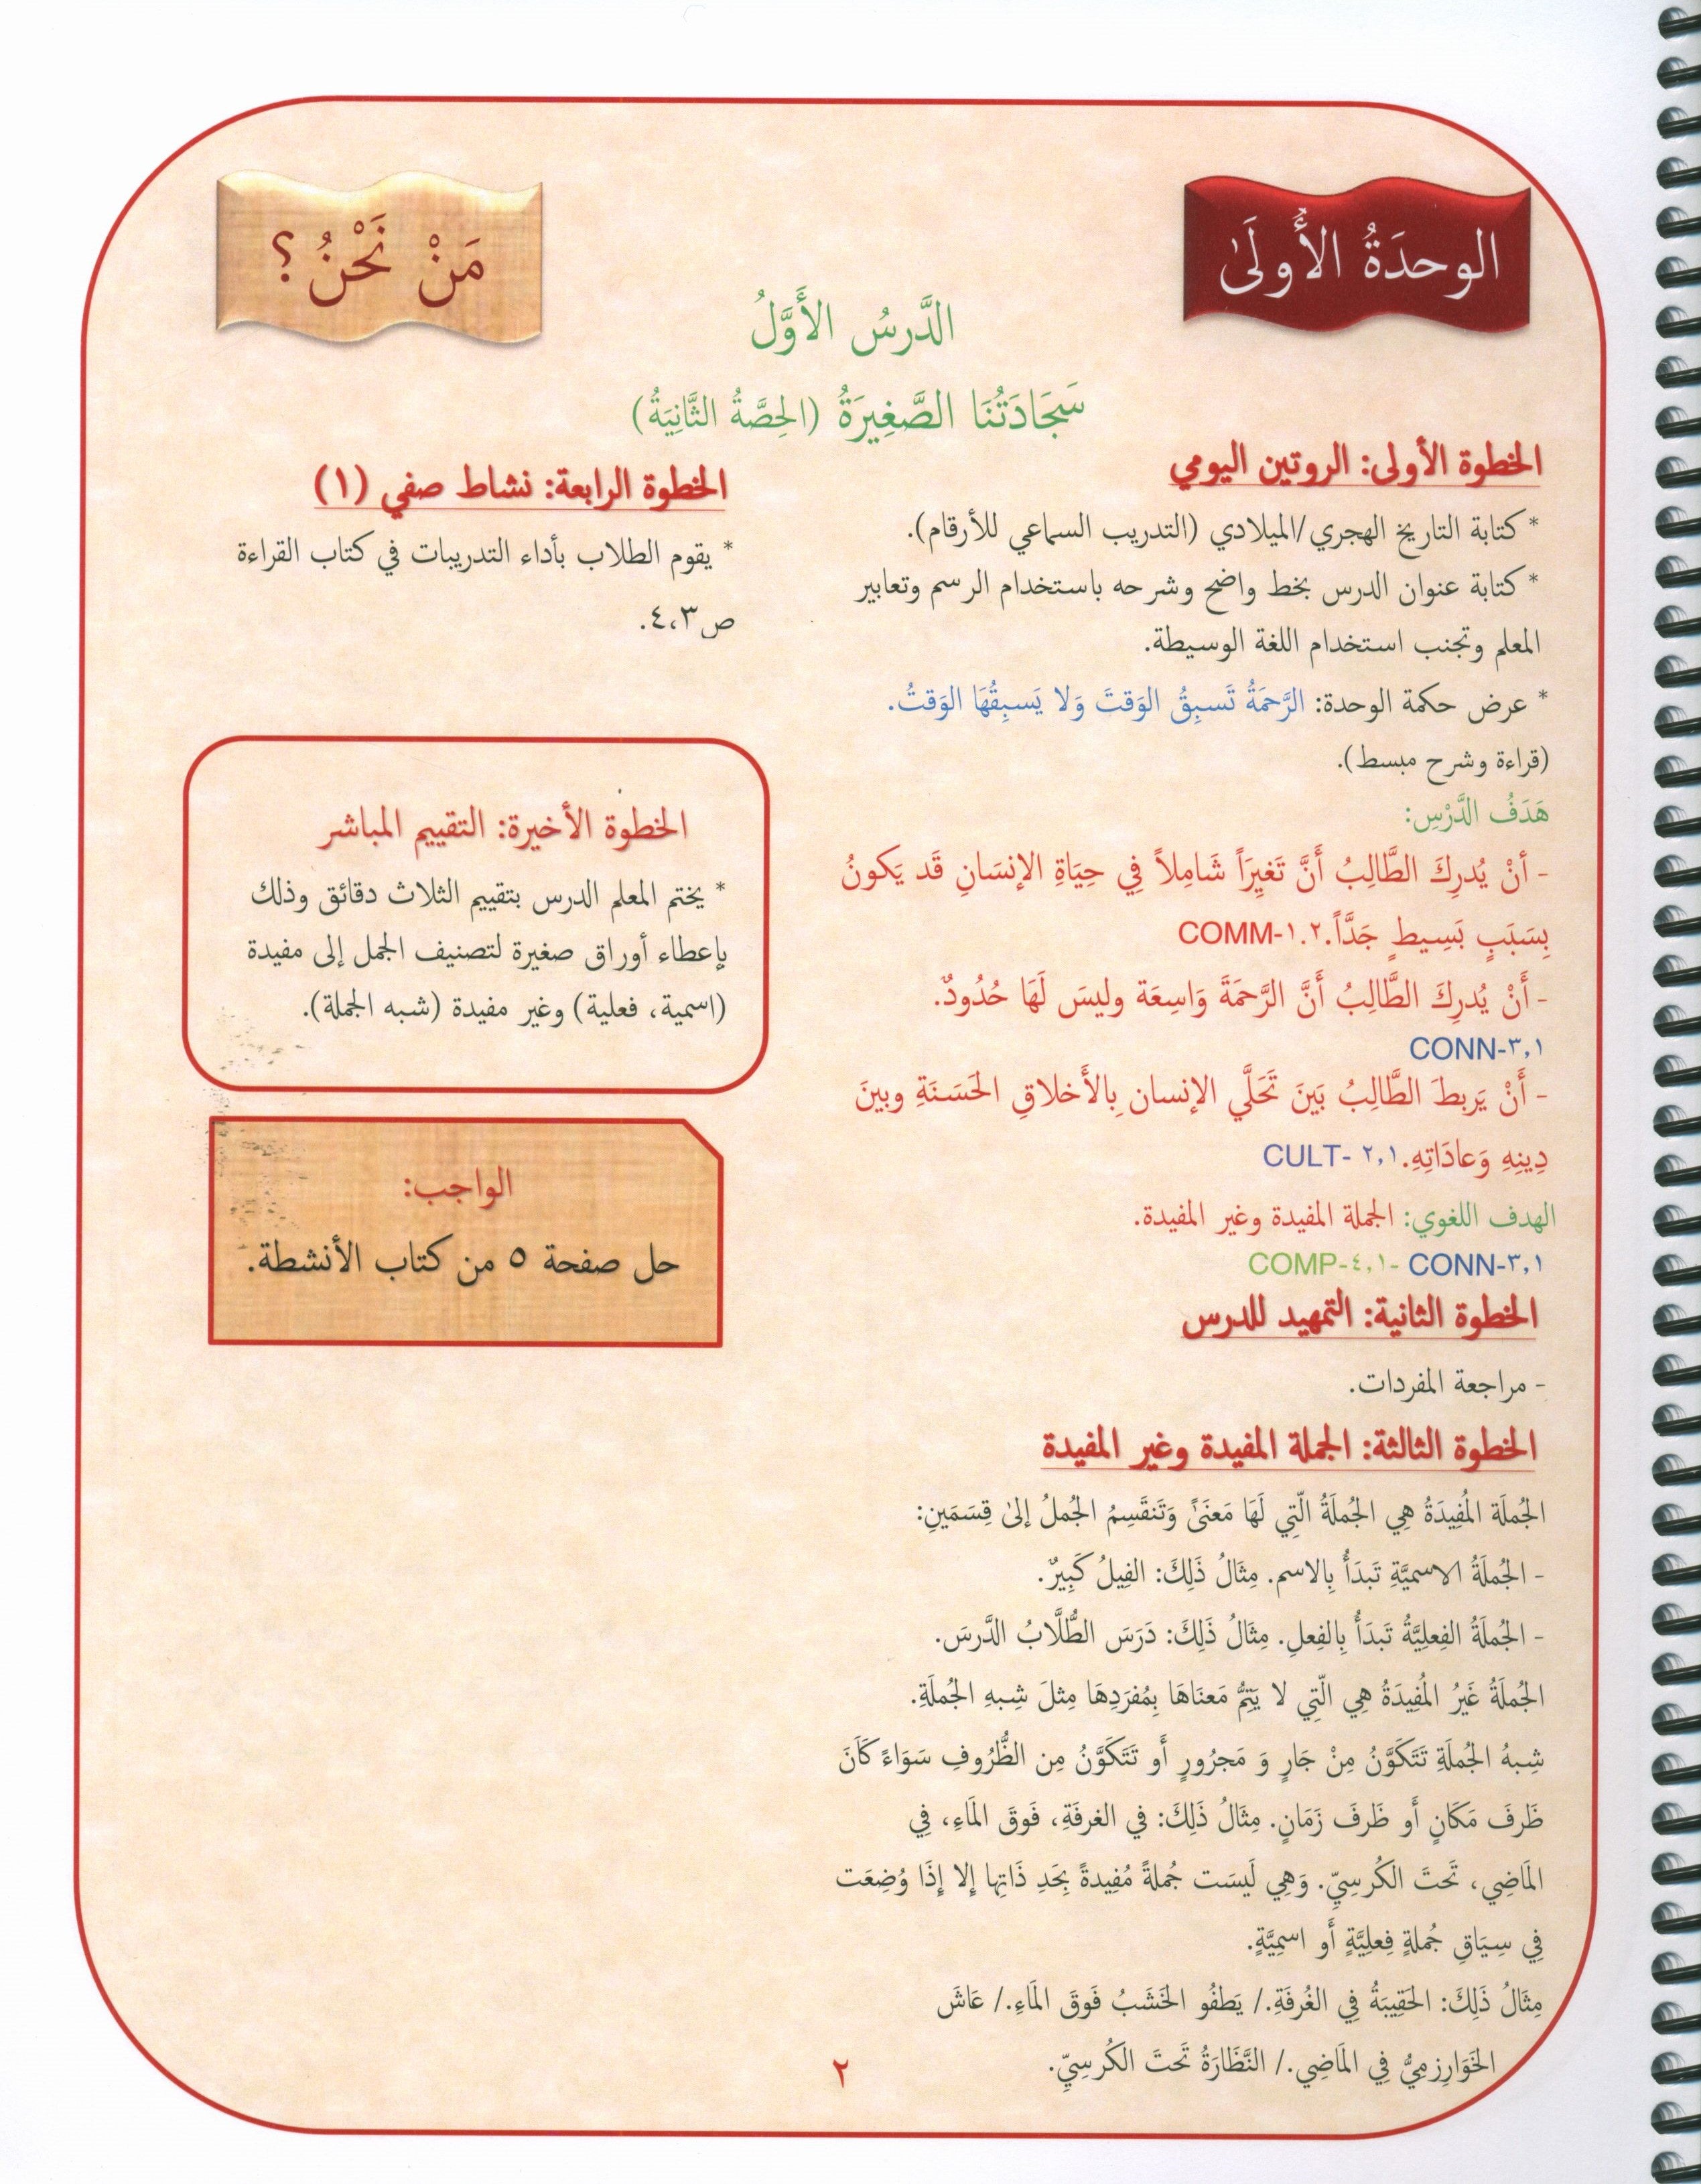 الوحدَةُ الأُولَىٰ
مَنْ نَحْنُ؟
الدَّرسُ الأَوَّلُ
سَجَادَتُنَا الصَّغِيرَةُ (الحِصَّةُ الثَّانِيَةُ)
الخطوة الأولى: الروتين اليومي
* كتابة التاريخ الهجري/الميلادي (التدريب السماعي للأرقام).
* كتابة عنوان الدرس بخط واضح وشرحه باستخدام الرسم وتعابير
المعلم وتجنب استخدام اللغة الوسيطة.
* عرض حكمة الوحدة: الرَّحمَةُ تَسبِقُ الوَقتَ وَلا يَسبِقُهَا الوَقتُ.
(قراءة وشرح مبسط).
هَدَفُ الدَّرْسِ:
- أنْ يُدرِكَ الطَّالِبُ أَنَّ تَغيِرَاً شَامِلاً فِي حِيَاةِ الإنسَانِ قَد يَكونُ
بِسَبَبٍ بَسِيطٍ جَدَّاً.COMM-١.٢
- أَنْ يُدرِكَ الطَّالِبُ أَنَّ الرَّحمَةَ وَاسِعَة وليسَ لَهَا حُدُودٌ.
CONN-٣,١
- أَنْ يَربطَ الطَّالِبُ بَينَ تَحَلَّي الإنسان بِالأَخلاقِ الحَسَنَةِ وبينَ
دِينِهِ وَعادَاتِهِ.CULT- ٢,١
الهدف اللغوي: الجملة المفيدة وغير المفيدة.
COMP-٤,١- CONN-٣,١
الخطوة الثانية: التمهيد للدرس
- مراجعة المفردات.
الخطوة الثالثة: الجملة المفيدة وغير المفيدة
الجُملَة المُفِيدَةُ هِي الجُملَةُ الّتِي لَهَا مَعنَىً وَتَنقَسِمُ الجُملُ إلىٰ قِسَمَينِ:
- الجُملَةُ الاسميَّةِ تَبدَأُ بِالاسم. مِثَالُ ذَلِكَ: الفِيلُ كَبِيرٌ.
- الجُملَةُ الفِعلِيَّةُ تَبدَأُ بِالفِعلِ. مِثَالُ ذَلِكَ: دَرَسَ الطُّلَّابُ الدَّرسَ.
الجُملَةُ غَيرُ المُفِيدَةُ هِي الّتِي لا يَتِمُّ مَعنَاهَا بِمُفرَدِهَا مِثلَ شِبهِ الجُملَةِ.
شِبهُ الجُملَةِ تَتَكَوَّنُ مِنْ جَارٍ وَ مَجرُورٍ أَو تَتَكَوَّنُ مِن الظُّرُوفِ سَوَاءً كَانَ
ظَرفَ مَكَانٍ أَو ظَرفَ زَمَانٍ. مِثَالُ ذَلِكَ: فِي الغرفَةِ، فَوقَ المَاءِ، فِي
المَاضِي، تَحتَ الكُرسِيِّ. وَهِي لَيسَت جُملةً مُفِيدةً بِحَدِ ذَاتِها إِلا إِذَا وُضِعَت
فِي سِيَاقِ جُملةٍ فِعلِيَّةٍ أَو اسمِيَّةٍ.
مِثَالُ ذَلِكَ: الحَقِيبَةُ فِي الغُرفَةِ./ يَطفُو الخَشَبُ فَوقَ المَاءِ./ عَاشَ
الخَوَارِزمِيُّ فِي المَاضِي./ النَّظَارَةُ تَحتَ الكُرسِيِّ.
الخطوة الرابعة: نشاط صفي (١)
* يقوم الطلاب بأداء التدريبات في كتاب القراءة
ص٤،٣.
الخطوة الأخيرة: التقييم المباشر
* يختم المعلم الدرس بتقييم الثلاث دقائق وذلك
بإعطاء أوراق صغيرة لتصنيف الجمل إلى مفيدة
(اسمية، فعلية) وغير مفيدة (شبه الجملة).
الواجب:
حل صفحة ٥ من كتاب الأنشطة.
٢